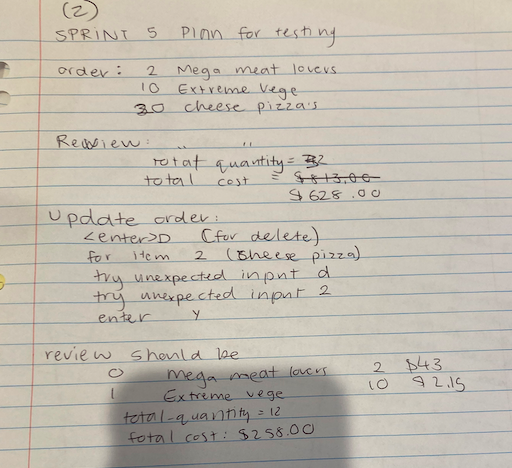 (2)
SPRINT 5 Plan for testing
order: 2 Mega meat lovers
10 Extreme Vege
20 cheese pizza's
Review: " "
total quantity = 32
total cost = $813.00
$628.00
Update order:
<enter>D (for delete)
for item 2 (cheese pizza)
try unexpected input d
try unexpected input 2
enter y
review should be
0 mega meat lovers 2 $43
1 Extreme vege 10 $2.15
total-quantity = 12
total cost: $258.00